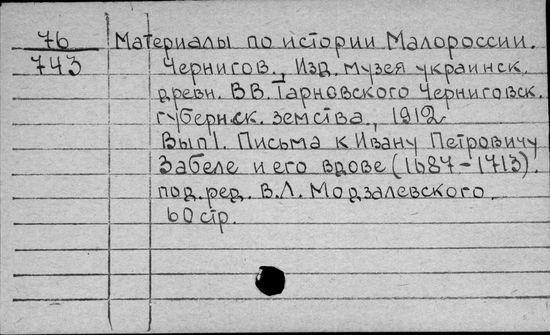 76 Материалы по истории Малороссии.
743 Чернигов, Изд. музея украинск.
древн. В.В. Тарновского Черниговск.
губернск. земства, 1912
Вып 1. Письма к Ивану Петровичу
Забеле и его вдове (1687-1713).
под.ред. В.Л. Модзалевского.
60 стр.